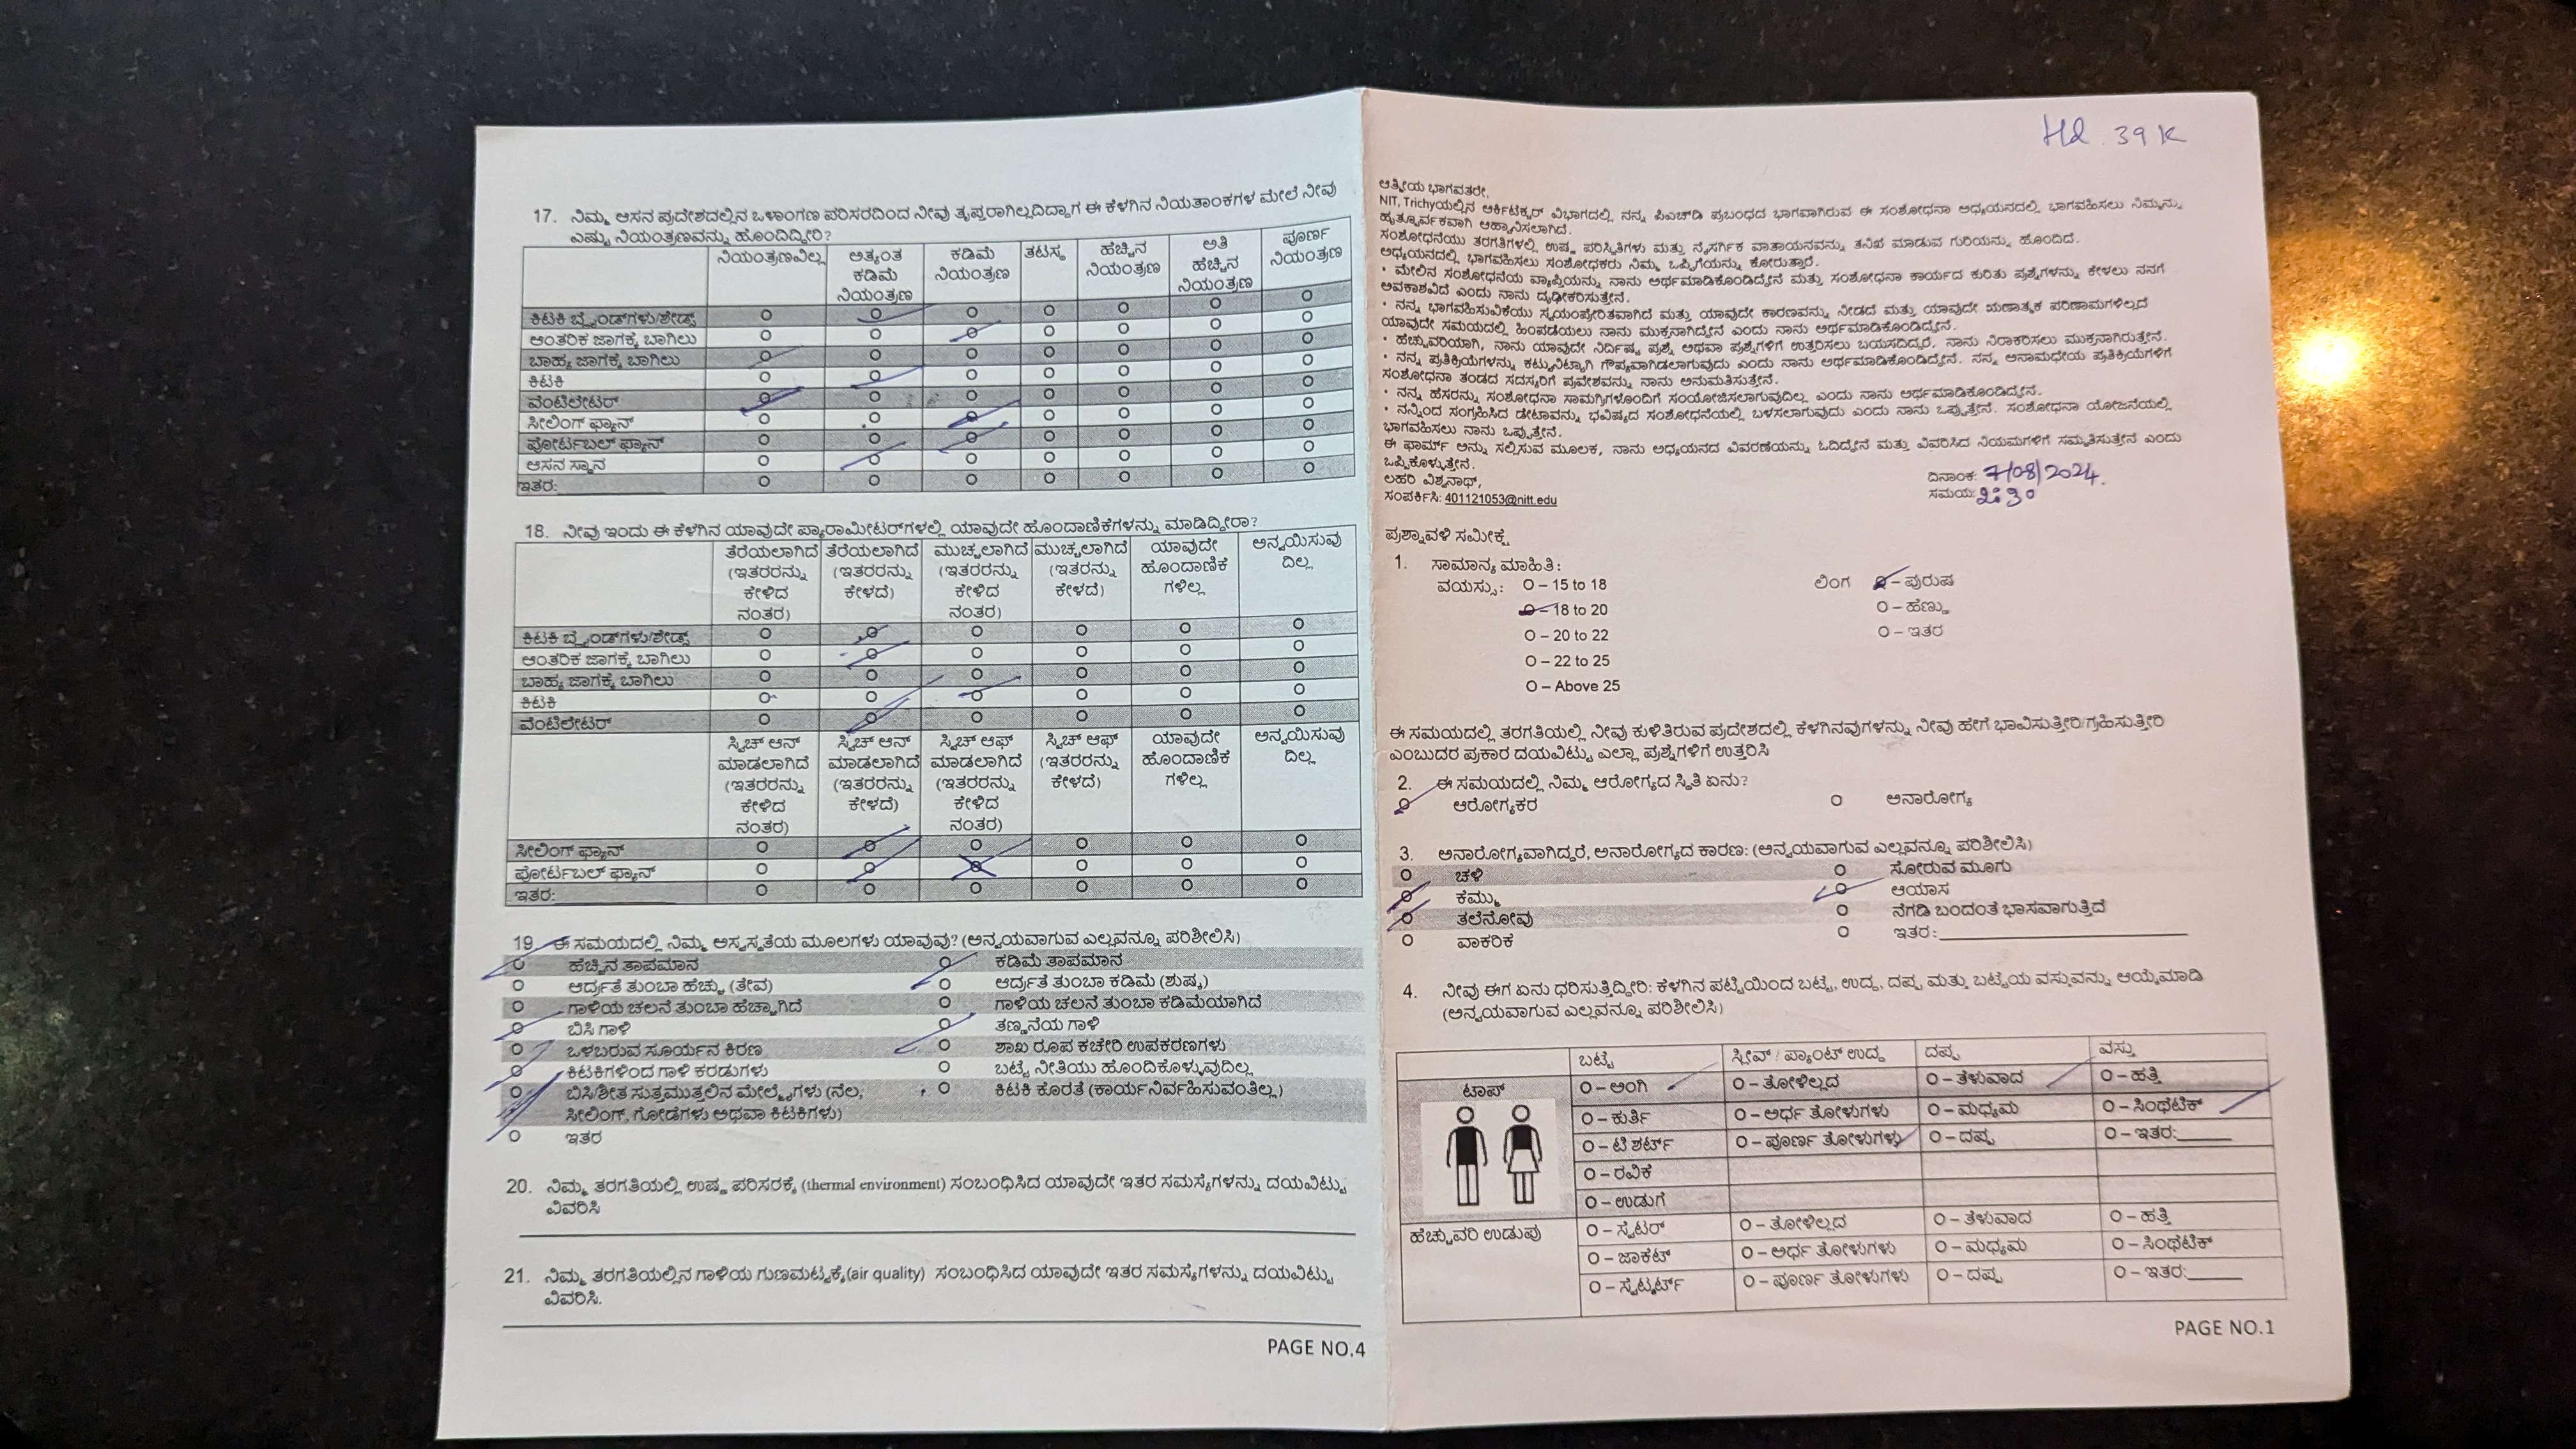 17. ನಿಮ್ಮ ಆಸನ ಪ್ರದೇಶದಲ್ಲಿನ ಒಳಾಂಗಣ ಪರಿಸರದಿಂದ ನೀವು ತೃಪ್ತರಾಗಿಲ್ಲದಿದ್ದಾಗ ಈ ಕೆಳಗಿನ ನಿಯತಾಂಕಗಳ ಮೇಲೆ ನೀವು
ಎಷ್ಟು ನಿಯಂತ್ರಣವನ್ನು ಹೊಂದಿದ್ದೀರಿ?
ನಿಯಂತ್ರಣವಿಲ್ಲ ಅತ್ಯಂತ ಕಡಿಮೆ ನಿಯಂತ್ರಣ ಕಡಿಮೆ ನಿಯಂತ್ರಣ ತಟಸ್ಥ ಹೆಚ್ಚಿನ ನಿಯಂತ್ರಣ ಅತಿ ಹೆಚ್ಚಿನ ನಿಯಂತ್ರಣ ಪೂರ್ಣ ನಿಯಂತ್ರಣ
ಕಿಟಕಿ ಬ್ಲೈಂಡ್‌ಗಳು/ಶೇಡ್ಸ್ O O O O O O O
ಆಂತರಿಕ ಜಾಗಕ್ಕೆ ಬಾಗಿಲು O O O O O O O
ಬಾಹ್ಯ ಜಾಗಕ್ಕೆ ಬಾಗಿಲು O O O O O O O
ಕಿಟಕಿ O O O O O O O
ವೆಂಟಿಲೇಟರ್ O O O O O O O
ಸೀಲಿಂಗ್ ಫ್ಯಾನ್ O O O O O O O
ಪೋರ್ಟಬಲ್ ಫ್ಯಾನ್ O O O O O O O
ಆಸನ ಸ್ಥಾನ O O O O O O O
ಇತರ: O O O O O O O
18. ನೀವು ಇಂದು ಈ ಕೆಳಗಿನ ಯಾವುದೇ ಪ್ಯಾರಾಮೀಟರ್‌ಗಳಲ್ಲಿ ಯಾವುದೇ ಹೊಂದಾಣಿಕೆಗಳನ್ನು ಮಾಡಿದ್ದೀರಾ?
ತೆರೆಯಲಾಗಿದೆ (ಇತರರನ್ನು ಕೇಳಿದ ನಂತರ) ತೆರೆಯಲಾಗಿದೆ (ಇತರರನ್ನು ಕೇಳದೆ) ಮುಚ್ಚಲಾಗಿದೆ (ಇತರರನ್ನು ಕೇಳಿದ ನಂತರ) ಮುಚ್ಚಲಾಗಿದೆ (ಇತರರನ್ನು ಕೇಳದೆ) ಯಾವುದೇ ಹೊಂದಾಣಿಕೆಗಳಿಲ್ಲ ಅನ್ವಯಿಸುವುದಿಲ್ಲ
ಕಿಟಕಿ ಬ್ಲೈಂಡ್‌ಗಳು/ಶೇಡ್ಸ್ O O O O O O
ಆಂತರಿಕ ಜಾಗಕ್ಕೆ ಬಾಗಿಲು O O O O O O
ಬಾಹ್ಯ ಜಾಗಕ್ಕೆ ಬಾಗಿಲು O O O O O O
ಕಿಟಕಿ O O O O O O
ವೆಂಟಿಲೇಟರ್ O O O O O O
ಸ್ವಿಚ್ ಆನ್ ಮಾಡಲಾಗಿದೆ (ಇತರರನ್ನು ಕೇಳಿದ ನಂತರ) ಸ್ವಿಚ್ ಆನ್ ಮಾಡಲಾಗಿದೆ (ಇತರರನ್ನು ಕೇಳದೆ) ಸ್ವಿಚ್ ಆಫ್ ಮಾಡಲಾಗಿದೆ (ಇತರರನ್ನು ಕೇಳಿದ ನಂತರ) ಸ್ವಿಚ್ ಆಫ್ (ಇತರರನ್ನು ಕೇಳದೆ) ಯಾವುದೇ ಹೊಂದಾಣಿಕೆಗಳಿಲ್ಲ ಅನ್ವಯಿಸುವುದಿಲ್ಲ
ಸೀಲಿಂಗ್ ಫ್ಯಾನ್ O O O O O O
ಪೋರ್ಟಬಲ್ ಫ್ಯಾನ್ O O O O O O
ಇತರ: O O O O O O
19. ಈ ಸಮಯದಲ್ಲಿ ನಿಮ್ಮ ಅಸ್ವಸ್ಥತೆಯ ಮೂಲಗಳು ಯಾವುವು? (ಅನ್ವಯವಾಗುವ ಎಲ್ಲವನ್ನೂ ಪರಿಶೀಲಿಸಿ)
O ಹೆಚ್ಚಿನ ತಾಪಮಾನ O ಕಡಿಮೆ ತಾಪಮಾನ
O ಆರ್ದ್ರತೆ ತುಂಬಾ ಹೆಚ್ಚು (ತೇವ) O ಆರ್ದ್ರತೆ ತುಂಬಾ ಕಡಿಮೆ (ಶುಷ್ಕ)
O ಗಾಳಿಯ ಚಲನೆ ತುಂಬಾ ಹೆಚ್ಚಾಗಿದೆ O ಗಾಳಿಯ ಚಲನೆ ತುಂಬಾ ಕಡಿಮೆಯಾಗಿದೆ
O ಬಿಸಿ ಗಾಳಿ O ತಣ್ಣನೆಯ ಗಾಳಿ
O ಒಳಬರುವ ಸೂರ್ಯನ ಕಿರಣ O ಶಾಖ ರೂಪ ಕಚೇರಿ ಉಪಕರಣಗಳು
O ಕಿಟಕಿಗಳಿಂದ ಗಾಳಿ ಕರಡುಗಳು O ಬಟ್ಟೆ ನೀತಿಯು ಹೊಂದಿಕೊಳ್ಳುವುದಿಲ್ಲ
O ಬಿಸಿ/ಶೀತ ಸುತ್ತಮುತ್ತಲಿನ ಮೇಲ್ಮೈಗಳು (ನೆಲ, O ಕಿಟಕಿ ಕೊರತೆ (ಕಾರ್ಯನಿರ್ವಹಿಸುವಂತಿಲ್ಲ)
ಸೀಲಿಂಗ್, ಗೋಡೆಗಳು ಅಥವಾ ಕಿಟಕಿಗಳು)
O ಇತರ
20. ನಿಮ್ಮ ತರಗತಿಯಲ್ಲಿ ಉಷ್ಣ ಪರಿಸರಕ್ಕೆ (thermal environment) ಸಂಬಂಧಿಸಿದ ಯಾವುದೇ ಇತರ ಸಮಸ್ಯೆಗಳನ್ನು ದಯವಿಟ್ಟು
ವಿವರಿಸಿ
21. ನಿಮ್ಮ ತರಗತಿಯಲ್ಲಿನ ಗಾಳಿಯ ಗುಣಮಟ್ಟಕ್ಕೆ(air quality) ಸಂಬಂಧಿಸಿದ ಯಾವುದೇ ಇತರ ಸಮಸ್ಯೆಗಳನ್ನು ದಯವಿಟ್ಟು
ವಿವರಿಸಿ.
PAGE NO.4
39 K
ಆತ್ಮೀಯ ಭಾಗವತರೇ,
NIT, Trichyಯಲ್ಲಿನ ಆರ್ಕಿಟೆಕ್ಚರ್ ವಿಭಾಗದಲ್ಲಿ ನನ್ನ ಪಿಎಚ್‌ಡಿ ಪ್ರಬಂಧದ ಭಾಗವಾಗಿರುವ ಈ ಸಂಶೋಧನಾ ಅಧ್ಯಯನದಲ್ಲಿ ಭಾಗವಹಿಸಲು ನಿಮ್ಮನ್ನು
ಹೃತ್ಪೂರ್ವಕವಾಗಿ ಆಹ್ವಾನಿಸಲಾಗಿದೆ.
ಸಂಶೋಧನೆಯು ತರಗತಿಗಳಲ್ಲಿ ಉಷ್ಣ ಪರಿಸ್ಥಿತಿಗಳು ಮತ್ತು ನೈಸರ್ಗಿಕ ವಾತಾಯನವನ್ನು ತನಿಖೆ ಮಾಡುವ ಗುರಿಯನ್ನು ಹೊಂದಿದೆ.
ಅಧ್ಯಯನದಲ್ಲಿ ಭಾಗವಹಿಸಲು ಸಂಶೋಧಕರು ನಿಮ್ಮ ಒಪ್ಪಿಗೆಯನ್ನು ಕೋರುತ್ತಾರೆ.
• ಮೇಲಿನ ಸಂಶೋಧನೆಯ ವ್ಯಾಪ್ತಿಯನ್ನು ನಾನು ಅರ್ಥಮಾಡಿಕೊಂಡಿದ್ದೇನೆ ಮತ್ತು ಸಂಶೋಧನಾ ಕಾರ್ಯದ ಕುರಿತು ಪ್ರಶ್ನೆಗಳನ್ನು ಕೇಳಲು ನನಗೆ
ಅವಕಾಶವಿದೆ ಎಂದು ನಾನು ದೃಢೀಕರಿಸುತ್ತೇನೆ.
• ನನ್ನ ಭಾಗವಹಿಸುವಿಕೆಯು ಸ್ವಯಂಪ್ರೇರಿತವಾಗಿದೆ ಮತ್ತು ಯಾವುದೇ ಕಾರಣವನ್ನು ನೀಡದೆ ಮತ್ತು ಯಾವುದೇ ಋಣಾತ್ಮಕ ಪರಿಣಾಮಗಳಿಲ್ಲದೆ
ಯಾವುದೇ ಸಮಯದಲ್ಲಿ ಹಿಂಪಡೆಯಲು ನಾನು ಮುಕ್ತನಾಗಿದ್ದೇನೆ ಎಂದು ನಾನು ಅರ್ಥಮಾಡಿಕೊಂಡಿದ್ದೇನೆ.
• ಹೆಚ್ಚುವರಿಯಾಗಿ, ನಾನು ಯಾವುದೇ ನಿರ್ದಿಷ್ಟ ಪ್ರಶ್ನೆ ಅಥವಾ ಪ್ರಶ್ನೆಗಳಿಗೆ ಉತ್ತರಿಸಲು ಬಯಸದಿದ್ದರೆ, ನಾನು ನಿರಾಕರಿಸಲು ಮುಕ್ತನಾಗಿರುತ್ತೇನೆ.
• ನನ್ನ ಪ್ರತಿಕ್ರಿಯೆಗಳನ್ನು ಕಟ್ಟುನಿಟ್ಟಾಗಿ ಗೌಪ್ಯವಾಗಿಡಲಾಗುವುದು ಎಂದು ನಾನು ಅರ್ಥಮಾಡಿಕೊಂಡಿದ್ದೇನೆ. ನನ್ನ ಅನಾಮಧೇಯ ಪ್ರತಿಕ್ರಿಯೆಗಳಿಗೆ
ಸಂಶೋಧನಾ ತಂಡದ ಸದಸ್ಯರಿಗೆ ಪ್ರವೇಶವನ್ನು ನಾನು ಅನುಮತಿಸುತ್ತೇನೆ.
• ನನ್ನ ಹೆಸರನ್ನು ಸಂಶೋಧನಾ ಸಾಮಗ್ರಿಗಳೊಂದಿಗೆ ಸಂಯೋಜಿಸಲಾಗುವುದಿಲ್ಲ ಎಂದು ನಾನು ಅರ್ಥಮಾಡಿಕೊಂಡಿದ್ದೇನೆ.
• ನನ್ನಿಂದ ಸಂಗ್ರಹಿಸಿದ ಡೇಟಾವನ್ನು ಭವಿಷ್ಯದ ಸಂಶೋಧನೆಯಲ್ಲಿ ಬಳಸಲಾಗುವುದು ಎಂದು ನಾನು ಒಪ್ಪುತ್ತೇನೆ. ಸಂಶೋಧನಾ ಯೋಜನೆಯಲ್ಲಿ
ಭಾಗವಹಿಸಲು ನಾನು ಒಪ್ಪುತ್ತೇನೆ.
ಈ ಫಾರ್ಮ್ ಅನ್ನು ಸಲ್ಲಿಸುವ ಮೂಲಕ, ನಾನು ಅಧ್ಯಯನದ ವಿವರಣೆಯನ್ನು ಓದಿದ್ದೇನೆ ಮತ್ತು ವಿವರಿಸಿದ ನಿಯಮಗಳಿಗೆ ಸಮ್ಮತಿಸುತ್ತೇನೆ ಎಂದು
ಒಪ್ಪಿಕೊಳ್ಳುತ್ತೇನೆ.
ಲಹರಿ ವಿಶ್ವನಾಥ್,
ಸಂಪರ್ಕಿಸಿ: 401121053@nitt.edu
ದಿನಾಂಕ: 7/08/2024.
ಸಮಯ: 2:30
ಪ್ರಶ್ನಾವಳಿ ಸಮೀಕ್ಷೆ
1. ಸಾಮಾನ್ಯ ಮಾಹಿತಿ:
ವಯಸ್ಸು: O – 15 to 18 ಲಿಂಗ O – ಪುರುಷ
O – 18 to 20 O – ಹೆಣ್ಣು
O – 20 to 22 O – ಇತರ
O – 22 to 25
O – Above 25
ಈ ಸಮಯದಲ್ಲಿ ತರಗತಿಯಲ್ಲಿ ನೀವು ಕುಳಿತಿರುವ ಪ್ರದೇಶದಲ್ಲಿ ಕೆಳಗಿನವುಗಳನ್ನು ನೀವು ಹೇಗೆ ಭಾವಿಸುತ್ತೀರಿ/ಗ್ರಹಿಸುತ್ತೀರಿ
ಎಂಬುದರ ಪ್ರಕಾರ ದಯವಿಟ್ಟು ಎಲ್ಲಾ ಪ್ರಶ್ನೆಗಳಿಗೆ ಉತ್ತರಿಸಿ
2. ಈ ಸಮಯದಲ್ಲಿ ನಿಮ್ಮ ಆರೋಗ್ಯದ ಸ್ಥಿತಿ ಏನು?
O ಆರೋಗ್ಯಕರ O ಅನಾರೋಗ್ಯ
3. ಅನಾರೋಗ್ಯವಾಗಿದ್ದರೆ, ಅನಾರೋಗ್ಯದ ಕಾರಣ: (ಅನ್ವಯವಾಗುವ ಎಲ್ಲವನ್ನೂ ಪರಿಶೀಲಿಸಿ)
O ಚಳಿ O ಸೋರುವ ಮೂಗು
O ಕೆಮ್ಮು O ಆಯಾಸ
O ತಲೆನೋವು O ನೆಗಡಿ ಬಂದಂತೆ ಭಾಸವಾಗುತ್ತಿದೆ
O ವಾಕರಿಕೆ O ಇತರ:
4. ನೀವು ಈಗ ಏನು ಧರಿಸುತ್ತಿದ್ದೀರಿ: ಕೆಳಗಿನ ಪಟ್ಟಿಯಿಂದ ಬಟ್ಟೆ, ಉದ್ದ, ದಪ್ಪ ಮತ್ತು ಬಟ್ಟೆಯ ವಸ್ತುವನ್ನು ಆಯ್ಕೆಮಾಡಿ
(ಅನ್ವಯವಾಗುವ ಎಲ್ಲವನ್ನೂ ಪರಿಶೀಲಿಸಿ)
ಬಟ್ಟೆ ಸ್ಲೀವ್ / ಪ್ಯಾಂಟ್ ಉದ್ದ ದಪ್ಪ ವಸ್ತು
ಟಾಪ್ O – ಅಂಗಿ O – ತೋಳಿಲ್ಲದ O – ತೆಳುವಾದ O – ಹತ್ತಿ
O – ಕುರ್ತಿ O – ಅರ್ಧ ತೋಳುಗಳು O – ಮಧ್ಯಮ O – ಸಿಂಥೆಟಿಕ್
O – ಟಿ ಶರ್ಟ್ O – ಪೂರ್ಣ ತೋಳುಗಳು O – ದಪ್ಪ O – ಇತರ:
O – ರವಿಕೆ
O – ಉಡುಗೆ
ಹೆಚ್ಚುವರಿ ಉಡುಪು O – ಸ್ವೆಟರ್ O – ತೋಳಿಲ್ಲದ O – ತೆಳುವಾದ O – ಹತ್ತಿ
O – ಜಾಕೆಟ್ O – ಅರ್ಧ ತೋಳುಗಳು O – ಮಧ್ಯಮ O – ಸಿಂಥೆಟಿಕ್
O – ಸ್ವೆಟ್ಶರ್ಟ್ O – ಪೂರ್ಣ ತೋಳುಗಳು O – ದಪ್ಪ O – ಇತರ:
PAGE NO.1